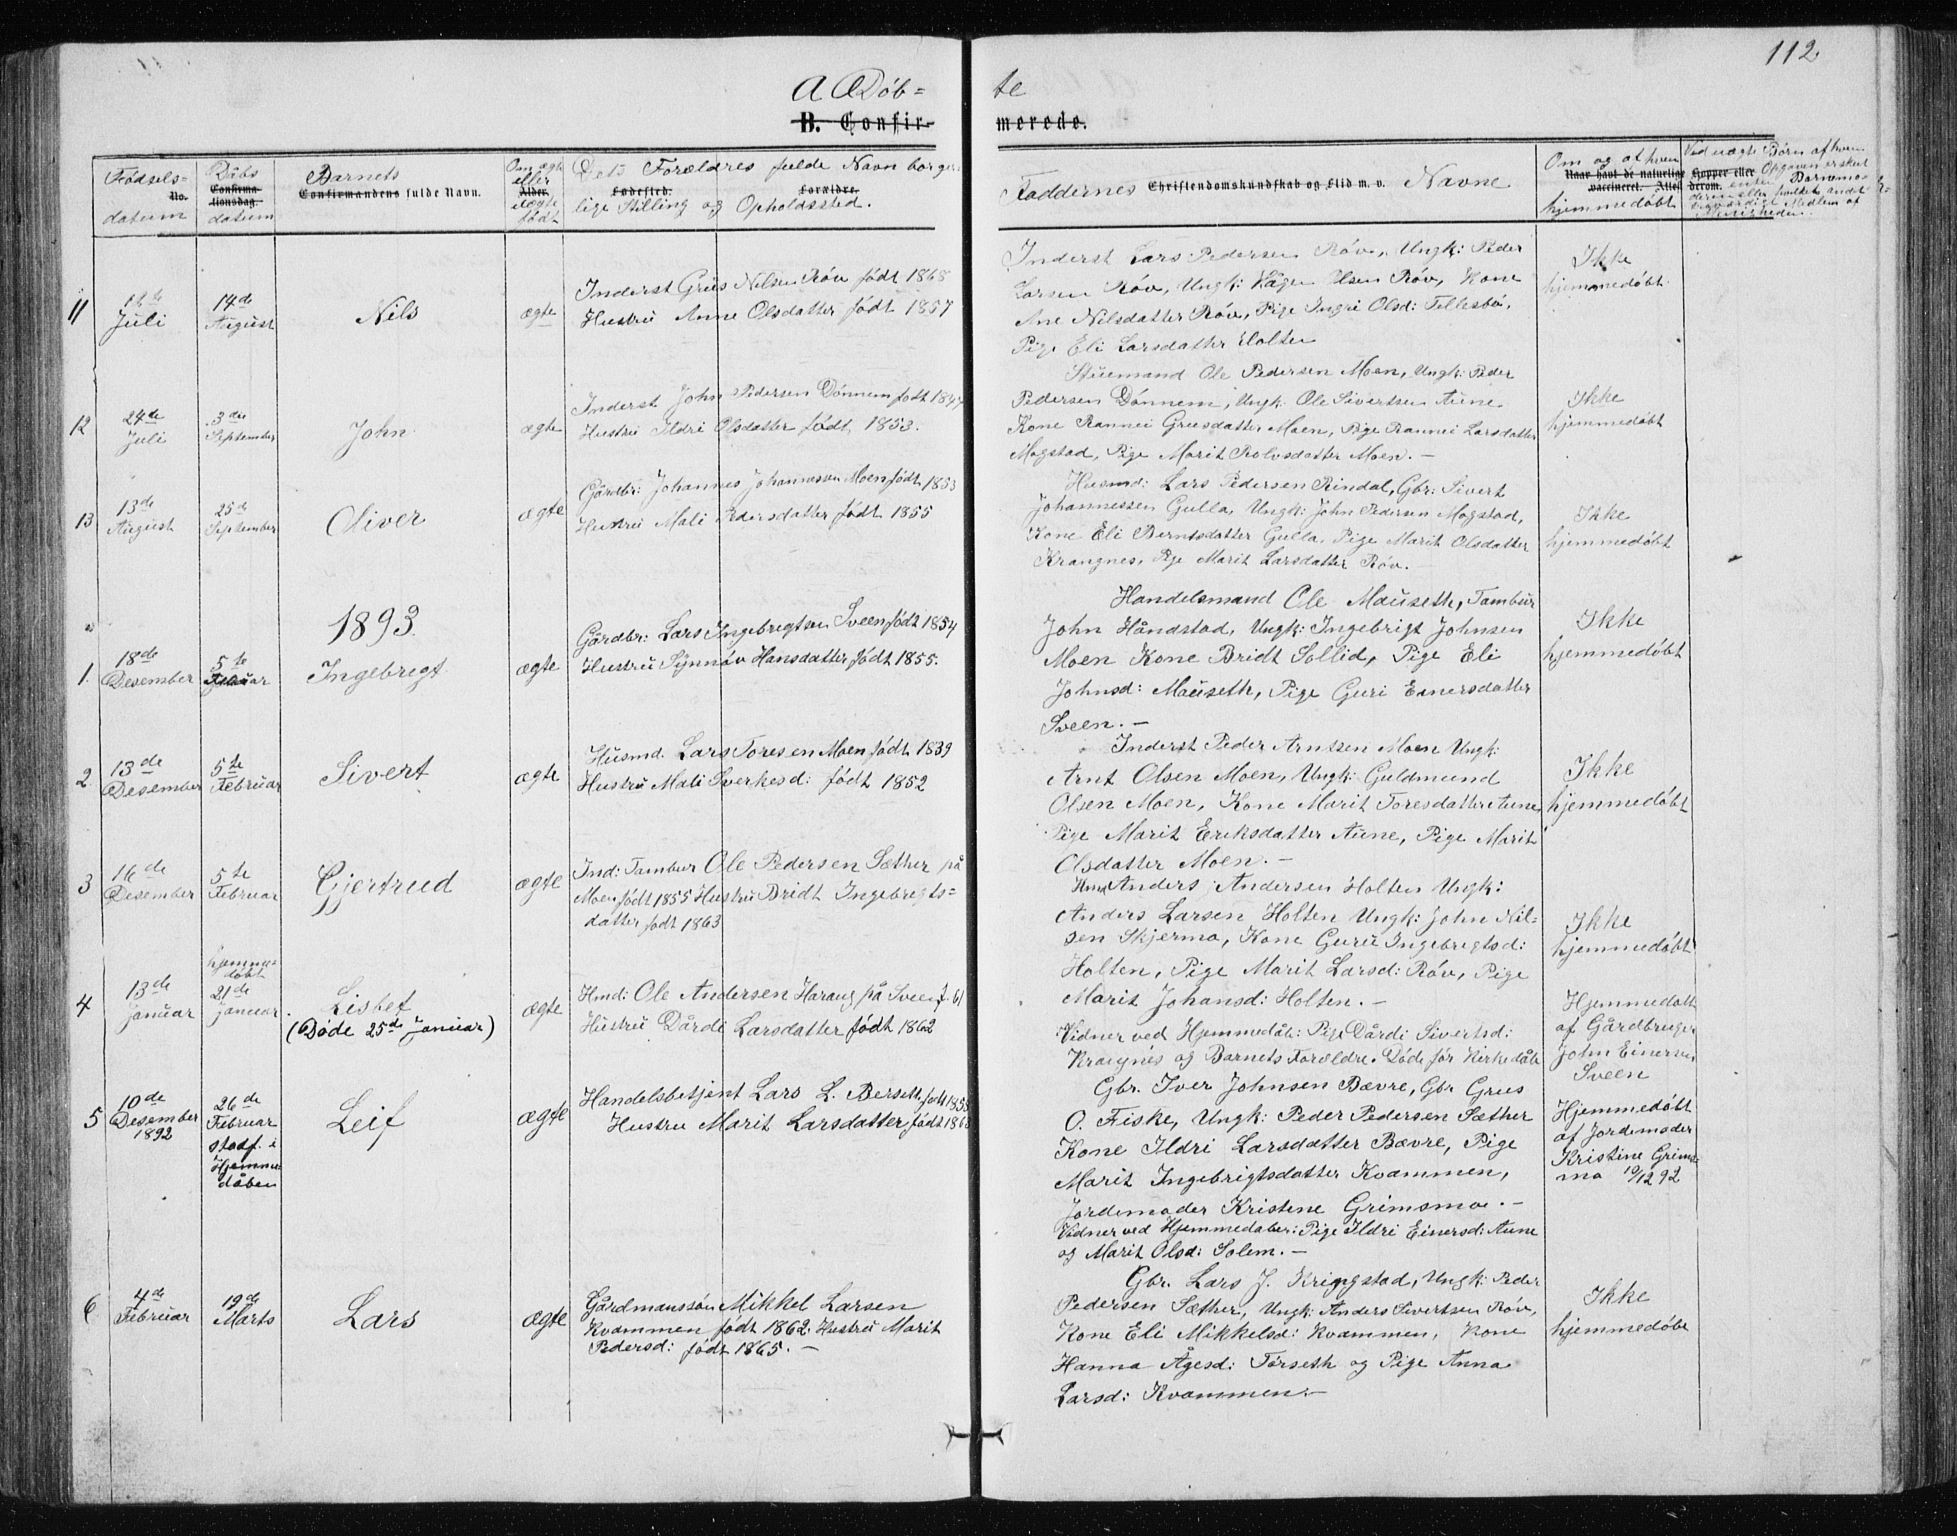 112
A Døb= te
B. Confir- merede.
Fødsels- No. datum
Døbs Confirma- tionsdag. datum
Barnets Confirmandens fulde Navn.
Om ægte eller Alder. uægte født
Dets Forældres fulde Navn borger-
Fødested. Forældre.
lige Stilling og Opholdssted.
Faddernes Christendomskundskab og Flid m. v. Navne
Om og af hvem
Naar havt de naturlige Kopper eller
vaccineret. Attest derom.
hjemmedøbt
Ved uægte Børn af hvem
Opgaven er skeet
enten Barnemo-
deren eller hvilket andet
Medlem af
Menigheden.
11
Juli
14de
August
Nils
ægte
Inderst Gruis Nilsen Røv født 1868
Hustru Anne Olsdatter født 1857
Inderst Lars Pedersen Røv, Ungk: Peder
Larsen Røv, Ungk: Hågen Olsen Røv, Kone
Ane Nilsdatter Røv, Pige Ingri Olsd: Tellesbø,
Pige Eli Larsdatter Holten
Ikke
hjemmedøbt
12
24de
Juli
3die
September
John
ægte
Inderst John Pedersen Dønnem født 1847
Hustru Ildri Olsdatter født 1853.
Stuemand Ole Pedersen Moen, Ungk: Peder
Pedersen Dønnem, Ungk. Ole Sivertsen Aune
Kone Rannei Gruesdatter Moen, Pige Rannei Larsdatter
Mogstad, Pige Marit Rolvsdatter Moen. —
Ikke
hjemmedøbt
13
13de
August
25de
September
Oliver
ægte
Gårdbr: Johannes Johannessen Moen født 1853
Hustru Mali Pedersdatter født 1855
Husmd: Lars Pedersen Rindal, Gbr: Sivert
Johannessen Gulla, Ungk: John Pedersen Mogstad,
Kone Eli Berntsdatter Gulla, Pige Marit Olsdatter
Krangnes, Pige Marit Larsdatter Røv. —
Ikke
hjemmedøbt
1893
1.
18de
Desember
5te
Februar
Ingebregt
ægte
Gårdbr: Lars Ingebregtsen Sveen født 1854
Hustru Synnøv Hansdatter født 1855.
Handelsmand Ole Mauseth, Tambur
John Håndstad, Ungk: Ingebrigt Johnsen
Moen Kone Bridt Sollid, Pige Eli
Johnsd: Mauseth, Pige Guri Einersdatter
Sveen. —
Ikke
hjemmedøbt
2
13de
Desember
5te
Februar
Sivert
ægte
Husmd. Lars Toresen Moen født 1839
Hustru Mali Sverkesd: født 1852
Inderst Peder Arntsen Moen Ungk:
Arnt Olsen Moen, Ungk: Guldmund
Olsen Moen, Kone Marit Toresdatter Aune,
Pige Marit Eriksdatter Aune, Pige Marit
Olsdatter Moen. —
Ikke
hjemmedøbt
3
16de
Desember
5te
Februar
Gjertrud
ægte
Ind: Tambur Ole Pedersen Sæther på
Moen født 1855 Hustru Bridt Ingebregts=
datter født 1863
Hmd Anders Andersen Holten Ungk:
Anders Larsen Holten Ungk: John Nil=
sen Skjermo, Kone Guru Ingebregtsd:
Holten, Pige Marit Larsd: Røv, Pige
Marit Johansd: Holten. —
Ikke
hjemmedøbt
4
13de
Januar
hjemme=
døbt
21de
Januar
Lisbet
(Døde 25de Januar)
ægte
Hmd: Ole Andersen Harang på Sveen f. 61
Hustru Dårdi Larsdatter født 1862
Vidner ved Hjemmedåb: Pige Dårdi Sivertsd:
Krangnes og Barnets Forældre. Døde før Kirkedåb
Hjemmedøbt
af Gårdbruger
John Einersen
Sveen
5
10de
Desember
1892
26de
Februar
stadf. i
Hjemme
dåben
Leif
ægte
Handelsbetjent Lars L. Berseth født 1855
Hustru Marit Larsdatter født 186
Gbr. Iver Johnsen Bævre, Gbr Grues
O. Fiske, Ungk: Peder Pedersen Sæther
Kone Ildri Larsdatter Bævre, Pige
Marit Ingebrigtsdatter Kvammen,
Jordemoder Kristine Grimsmo. —
Vidner ved Hjemmedåben: Pige Ildri Einersd: Aune
og Marit Olsd: Solem. —
Hjemmedøbt
af Jordemoder
Kristine Grims=
mo 10/12 92
6
4de
Februar
19de
Marts
Lars
ægte
Gårdmanssøn Mikkel Larsen
Kvammen født 1862. Hustru Marit
Pedersd: født 1865. —
Gbr. Lars J. Kringstad, Ungk: Peder
Pedersen Sæther, Ungk: Anders Sivertsen Røv,
Kone Eli Mikkelsd: Kvammen, Kone
Hanna Ågesd: Torseth og Pige Anna
Larsd: Kvammen. —
Ikke
hjemmedøbt